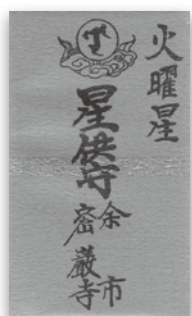 火曜星
星供守
余市
密厳寺